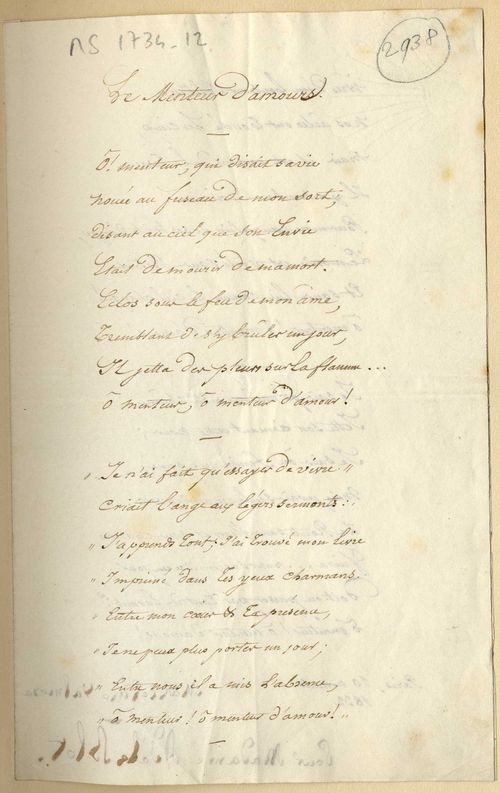 MS 1734-12
2938
Le Menteur d'amours.
Ô! menteur, qui disait sa vie
nouée au fuseau de mon sort;
disant au ciel que son Envie
Etait de mourir de ma mort.
Eclos sous le feu de mon âme,
Tremblant de s'y brûler un jour,
Il jetta des pleurs sur la flamme...
ô menteur, ô menteur d'amour!
" Je n'ai fait qu'essayer de vivre "
criait l'ange aux légers serments:
" J'apprends tout; j'ai trouvé mon livre
" Imprimé dans tes yeux charmans.
" Entre mon cœur & ta présence,
" Je ne peux plus porter un jour;
" Entre nous il a mis l'absence,
" ô menteur! ô menteur d'amour! "